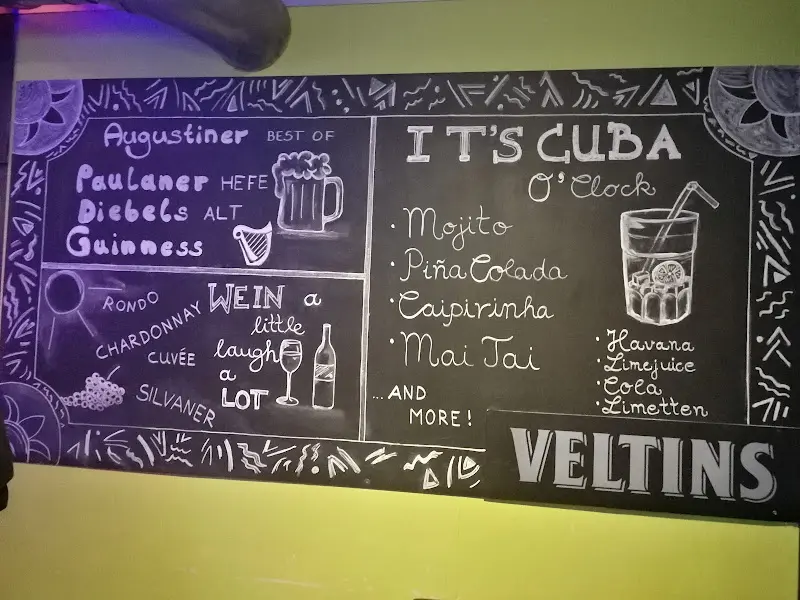 Augustiner BEST OF
Paulaner HEFE
Diebels ALT
Guinness
RONDO
CHARDONNAY
CUVÉE
SILVANER
WEIN a
little
laugh
a
LOT
IT'S CUBA
O'Clock
· Mojito
· Piña Colada
· Caipirinha
· Mai Tai
...AND
MORE!
· Havana
· Limejuice
· Cola
· Limetten
VELTINS